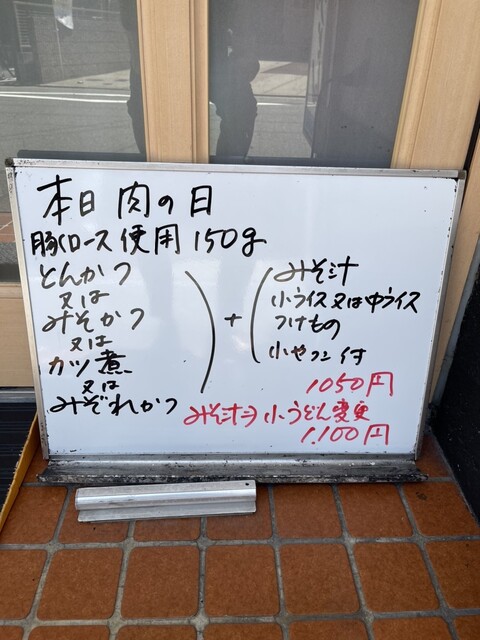 本日 肉の日
豚ロース 使用 150g
とんかつ
又は
みそかつ
又は
カツ煮
又は
みぞれかつ
+
みそ汁
小ライス 又は 中ライス
つけもの
小やっこ 付
1050円
みそ汁→小うどん変更
1,100円